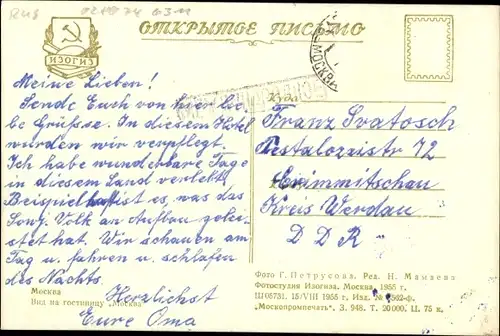 RUS
ИЗОГИЗ
ОТКРЫТОЕ ПИСЬМО
МОСКВА
Meine Lieben!
Sende Euch von hier lie-
be Grüsse. In diesem Hotel
wurden wir verpflegt.
Ich habe wunderbare Tage
in diesem Land verlebt.
Beispielhaft ist es, was das
Sowj. Volk an Aufbau gelei-
stet hat. Wir schauen am
Tag u. fahren u. schlafen
des Nachts.
Herzlichst
Eure Oma
Москва
Вид на гостиницу „Москва"
Куда
Franz Svatosch
Pestalozzistr 72
Crimmitschau
Kreis Werdau
DDR
Фото Г. Петрусова. Ред. Н. Мамаева
Фотостудия Изогиза. Москва, 1955 г.
Ш 06731. 15/VIII 1955 г. Изд. №
„Москпромпечать" З. 948. Т. 20000. Ц. 75 к.